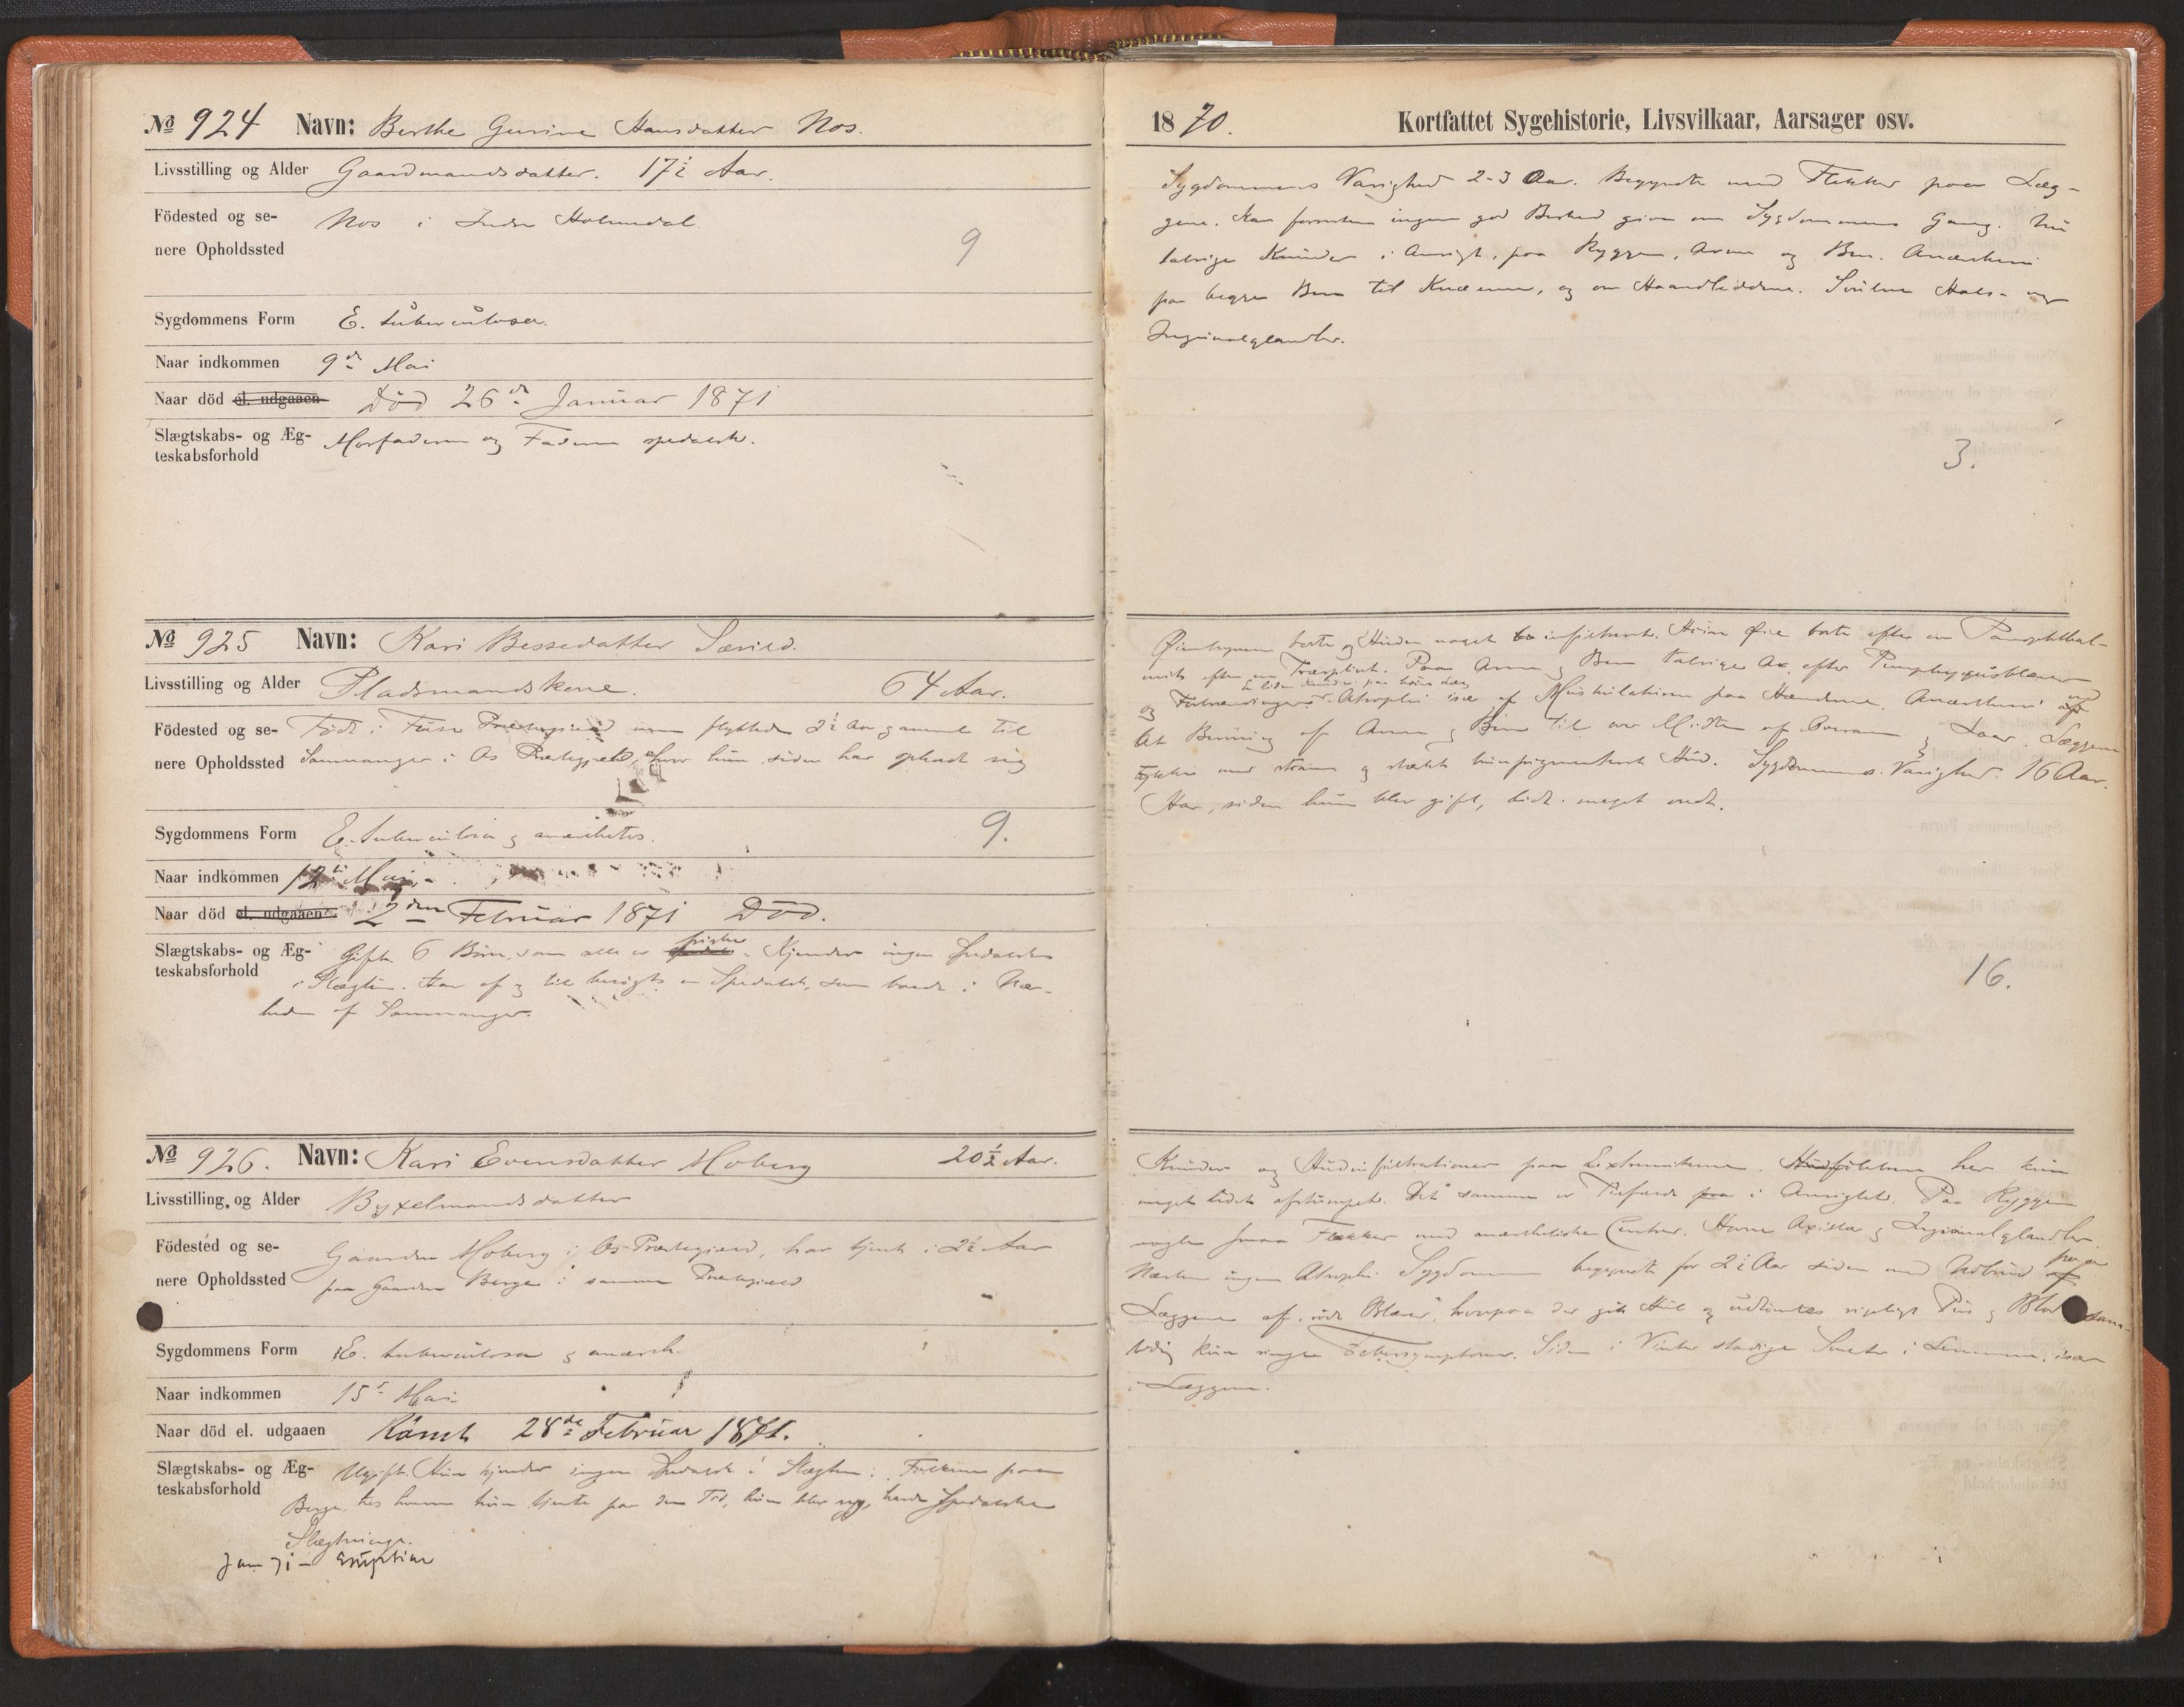 No 924 Navn: Berthe Gurine Hansdatter Nos.
Livsstilling og Alder Gaardmandsdatter. 17½ Aar.
Födested og se-
nere Opholdssted Nos i Indre Holmedal.
9
Sygdommens Form E. tuberculosa.
Naar indkommen 9de Mai
Naar död el. udgaaen Död 26de Januar 1871
Slægtskabs- og Æg-
teskabsforhold Morfaderen og Faderen spedalsk.
No 925 Navn: Kari Bessedatter
Livsstilling og Alder Pladsmandskone. 64 Aar.
Födested og se- Födt i Fuse Præstegield, flyttede 2½ Aar gammel til
nere Opholdssted Samnanger i Os Præstegield, hvor hun siden har opholdt sig
Sygdommens Form E. tuberculosa og anæsthetos. 9.
Naar indkommen 12te Mai
Naar död el. udgaaen 2den Februar 1871 Död.
Slægtskabs- og Æg- Gift. 6 Börn, som alle er friske. Kjender ingen Spedalske
teskabsforhold i Slægten. Har af og til besögt en Spedalsk, som boede i Nær-
heden af Samnanger.
No 926. Navn: Kari Evensdatter Moberg 20½ Aar.
Livsstilling og Alder Byxelmandsdatter
Födested og se- Gaarden Moberg i Os Præstegield, har tjent i 2½ Aar
nere Opholdssted paa Gaarden Berge i samme Præstegield
Sygdommens Form E. tuberculosa og anæsth.
Naar indkommen 15de Mai
Naar död el. udgaaen Römt 28de Februar 1871.
Slægtskabs- og Æg- Ugift. Hun kjender ingen Spedalsk i Slægten. Folkene paa
teskabsforhold Berge, hos hvem hun tjente paa den Tid, hun blev syg, havde Spedalske
Slægtninge.
Jan 71 – Eruption
1870. Kortfattet Sygehistorie, Livsvilkaar, Aarsager osv.
Sygdommens Varighed 2-3 Aar. Begyndte med Flekker paa Læg-
gene. Kan forresten ingen god Besked give om Sygdommens Gang. Nu
talrige Knuder i Ansigt, paa Ryggen, Arme og Ben. Anæstesi
paa begge Ben til Knæerne, og om Haandleddene. Svulne Hals- og
Inguinalglandler.
3.
Öienbrynene borte og Huden noget infiltreret. Höire Öie borte efter en Panophthal-
mit efter en Træsplint. Paa Arme og Ben talrige Ar efter Pemphygusblærer
En liden Knude paa höire Læg
og Atrophi især af Muskulaturen paa Hænderne. Anæsthesi
Ben til over Midten af Overarm og Laar. Læggene
tykke med stram og stærkt brunpigmenteret Hud. Sygdommens Varighed. 16 Aar.
Har, siden hun blev gift, lidt meget ondt.
16.
Knuder og Hudinfiltrationer paa Extremiteterne. her kun
meget lidet afstumpet. Det samme er Tilfælde i Ansigtet. Paa Ryggen
nogle smaa Flekker med anæsthetiske Centrer. Hovne Axillar og Inguinalglandler.
Næsten ingen Atrophi. Sygdommen begyndte for 2½ Aar siden med Udbrud paa
Læggene af „röde Blærer“, hvorpaa der gik Hul og udtömtes rigeligt Pus og Blod, sam-
tidig kun ringe Febersymptomer. Siden i Vinter stadige Smerter i Lemmene, især
i Læggene.